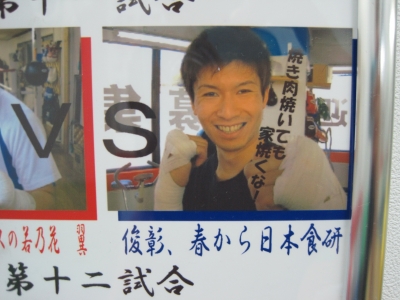 第十一試合
VS
焼き肉焼いても
家焼くな!
スの若乃花 翼
俊彰、春から日本食研
第十二試合